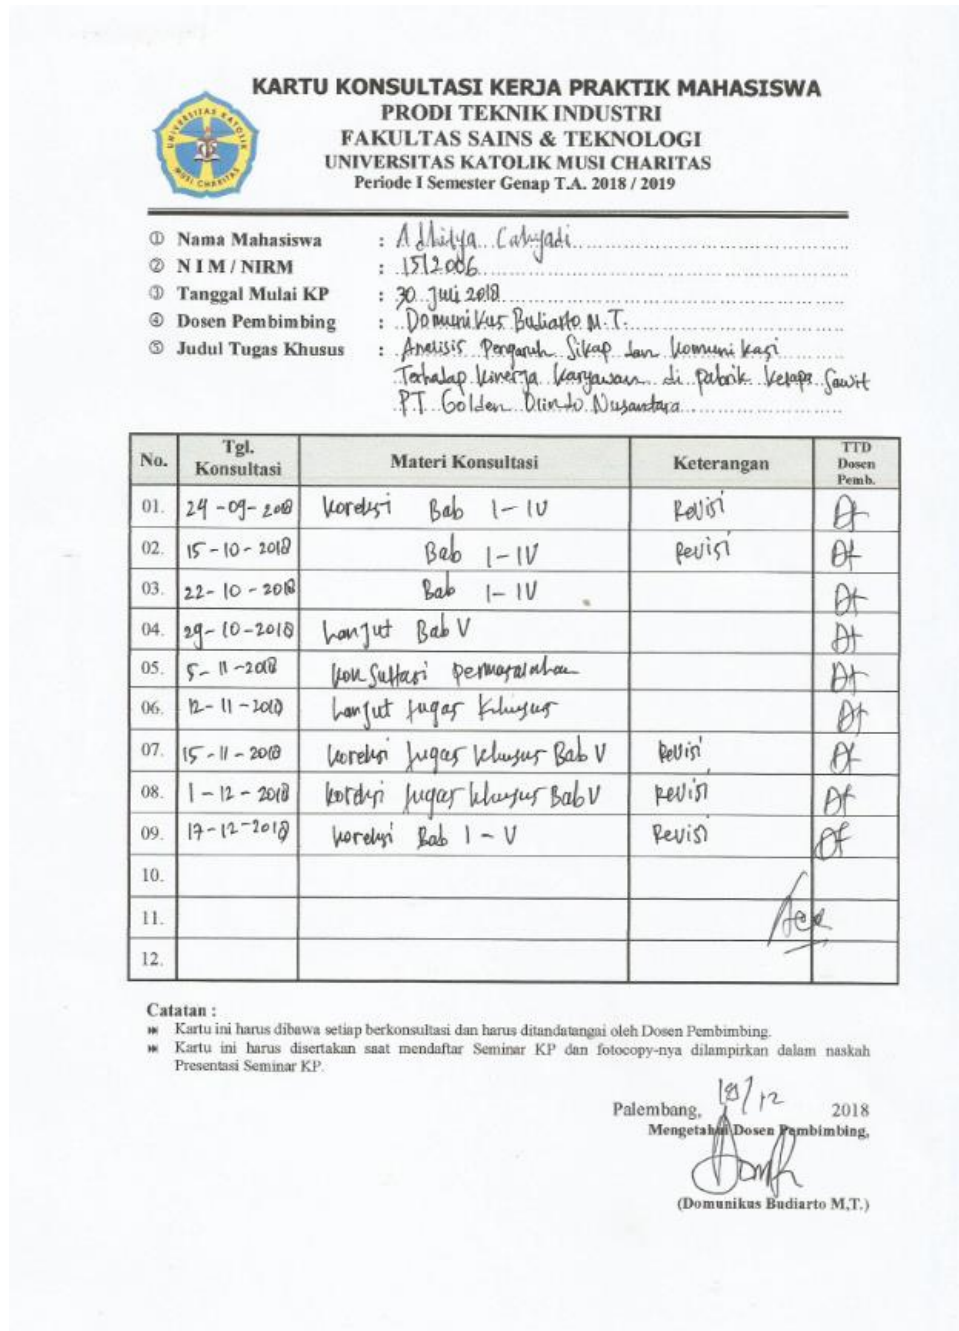 KARTU KONSULTASI KERJA PRAKTIK MAHASISWA
PRODI TEKNIK INDUSTRI
FAKULTAS SAINS & TEKNOLOGI
UNIVERSITAS KATOLIK MUSI CHARITAS
Periode I Semester Genap T.A. 2018 / 2019
UNIVERSITAS KATOLIK
MUSI CHARITAS
① Nama Mahasiswa : Adhitya Cahyadi
② N I M / NIRM : 1512006
③ Tanggal Mulai KP : 30 Juli 2018
④ Dosen Pembimbing : Domunikus Budiarto M.T.
⑤ Judul Tugas Khusus : Analisis Pengaruh Sikap dan Komunikasi
Terhadap Kinerja Karyawan di Pabrik Kelapa Sawit
PT Golden Oilindo Nusantara
No. Tgl. Konsultasi Materi Konsultasi Keterangan TTD Dosen Pemb.
01. 24-09-2018 Koreksi Bab I-IV Revisi
02. 15-10-2018 Bab I-IV Revisi
03. 22-10-2018 Bab I-IV
04. 29-10-2018 Lanjut Bab V
05. 5-11-2018 Konsultasi Permasalahan
06. 12-11-2018 Lanjut tugas Khusus
07. 15-11-2018 Koreksi tugas khusus Bab V Revisi
08. 1-12-2018 Koreksi tugas khusus Bab V Revisi
09. 17-12-2018 Koreksi Bab I-V Revisi
10.
11. Acc
12.
Catatan :
⏭ Kartu ini harus dibawa setiap berkonsultasi dan harus ditandatangai oleh Dosen Pembimbing.
⏭ Kartu ini harus disertakan saat mendaftar Seminar KP dan fotocopy-nya dilampirkan dalam naskah
Presentasi Seminar KP.
Palembang, 18/12 2018
Mengetahui Dosen Pembimbing,
(Domunikus Budiarto M,T.)